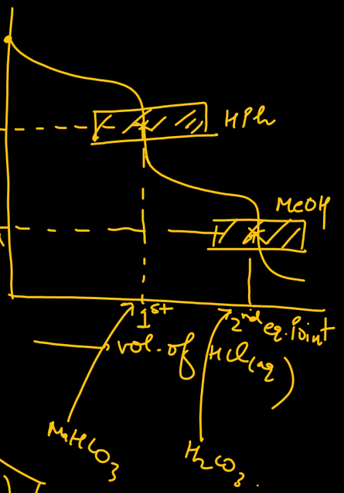 HPh
MeOH
1st
2nd eq. Point
vol. of HCl(aq)
NaHCO3
H2CO3.